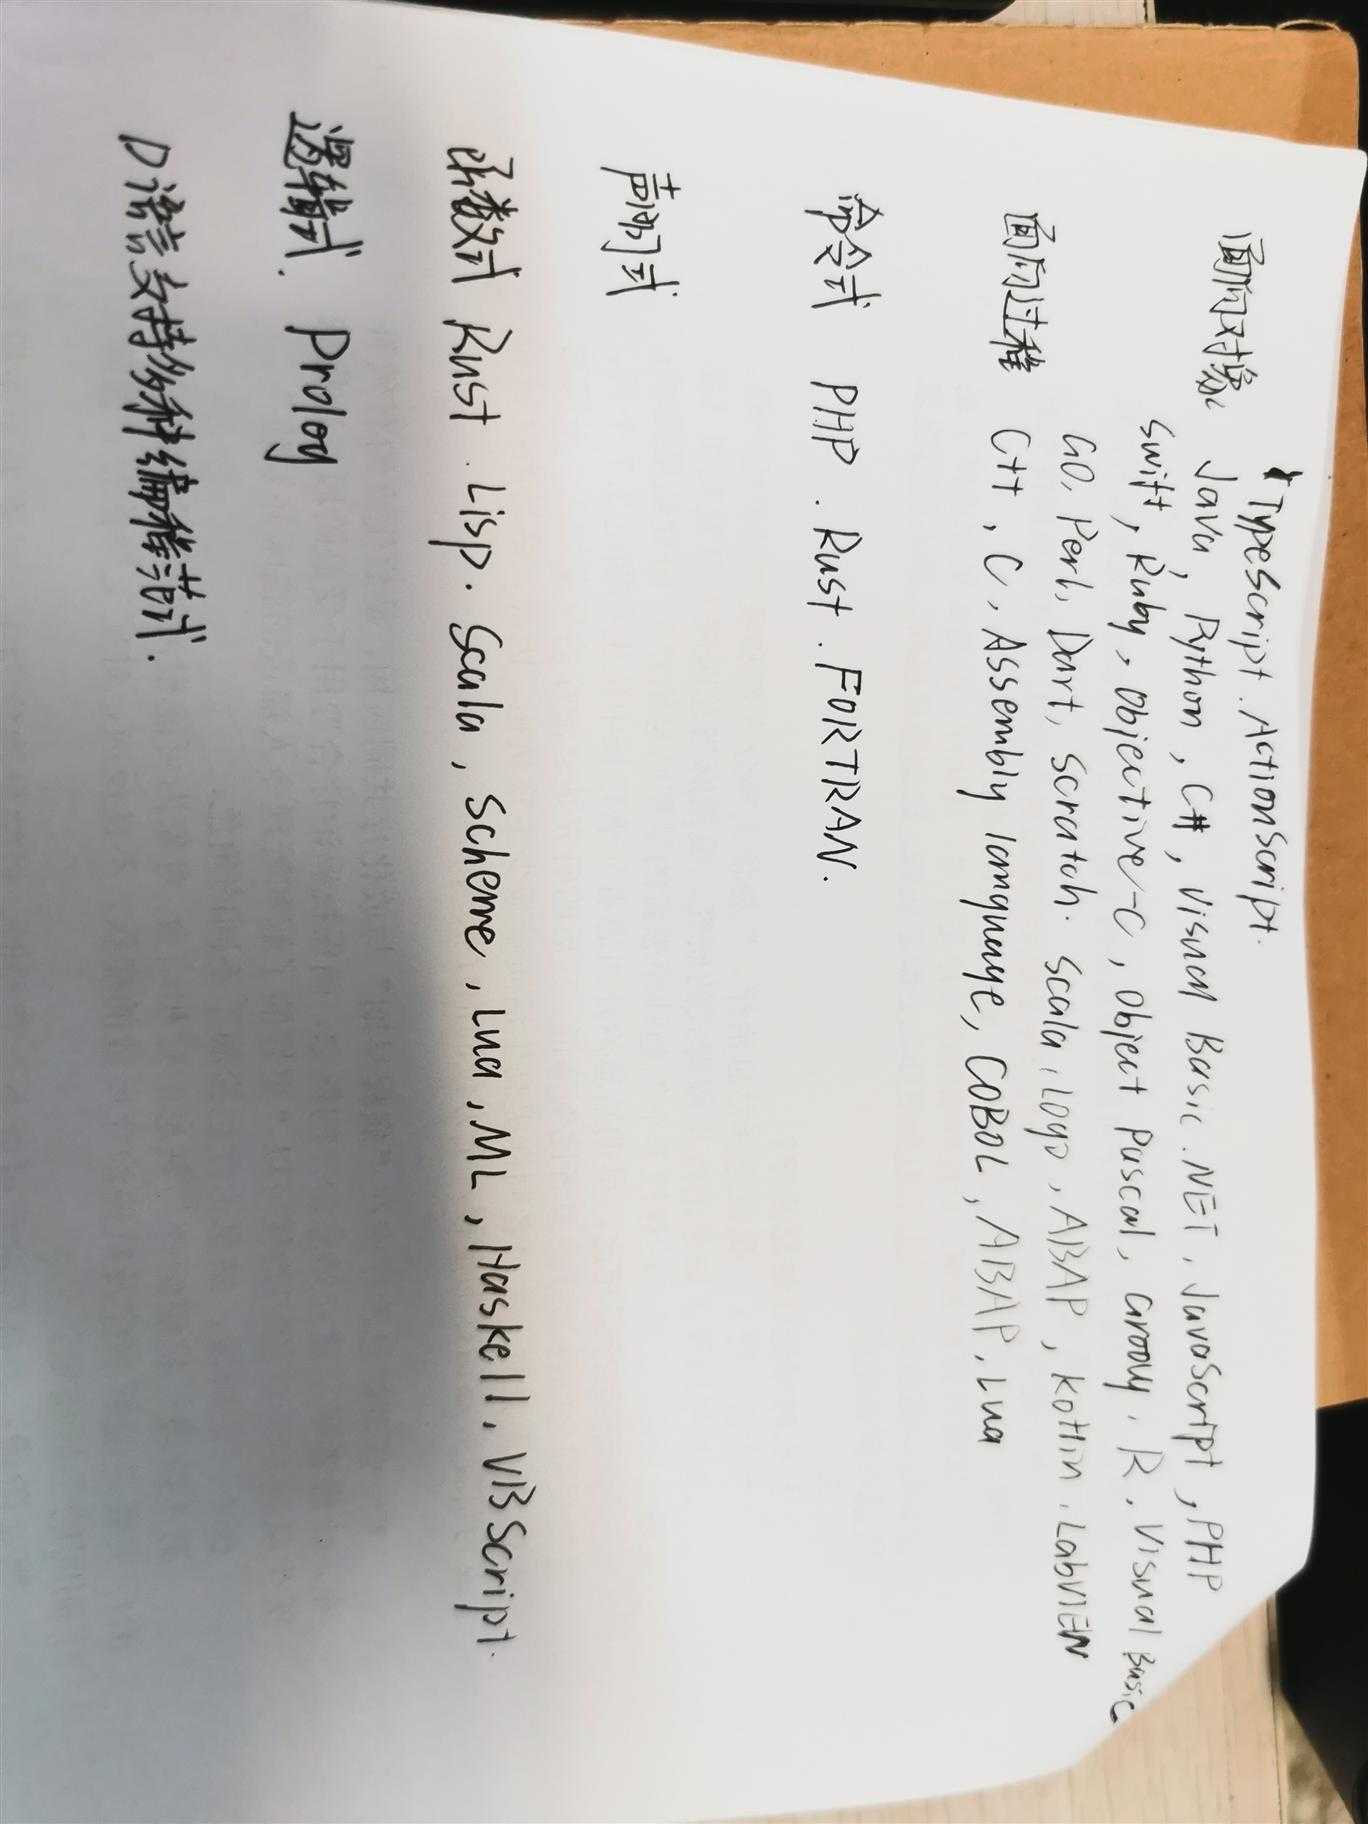 TypeScript. ActionScript.
面向对象 Java, Python, C#, Visual Basic .NET, JavaScript, PHP
Swift, Ruby, Objective-C, Object Pascal, Groovy, R, Visual Basic
GO, Perl, Dart, Scratch. Scala, Logo, ABAP, Kotlin, LabVIEW
面向过程 C++, C, Assembly language, COBOL, ABAP, Lua
命令式 PHP. Rust. FORTRAN.
声明式
函数式 Rust. Lisp. Scala, Scheme, Lua, ML, Haskell, VBScript.
逻辑式. Prolog
D语言支持多种编程范式.